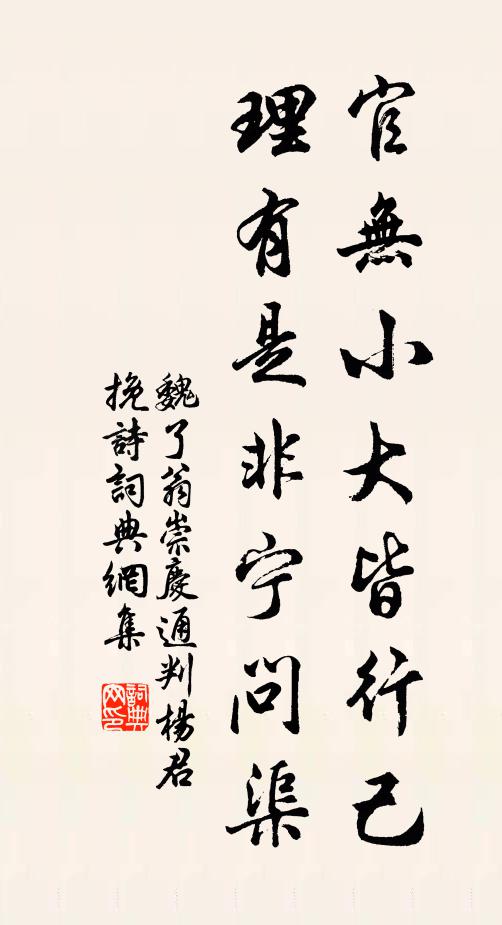 官無小大皆行己
理有是非宁問渠
魏了翁崇慶通判楊君
挽詩詞典網集
詞典网印